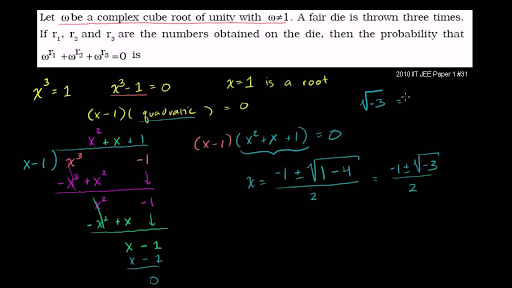 Let ω be a complex cube root of unity with ω≠1. A fair die is thrown three times.
If r₁, r₂ and r₃ are the numbers obtained on the die, then the probability that
ω^r₁ + ω^r₂ + ω^r₃ = 0 is
2010 IIT JEE Paper 1 #31
x³ = 1
x³ - 1 = 0
x = 1 is a root
√-3 =
(x - 1) (quadratic) = 0
x² + x + 1
x - 1 ) x³ -1
-x³ + x² ↓
x² -1
-x² + x ↓
x - 1
x - 1
0
(x - 1)(x² + x + 1) = 0
x = (-1 ± √(1 - 4)) / 2 = (-1 ± √-3) / 2